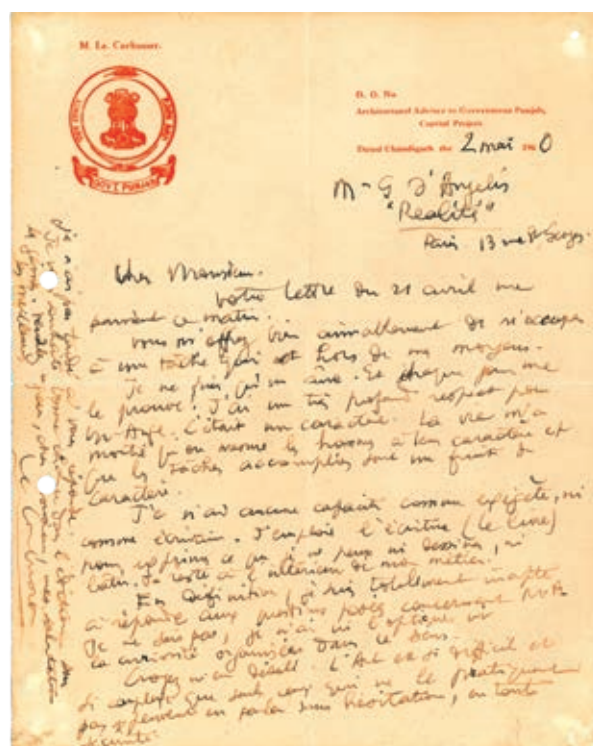 M. Le. Corbusier.
GOVT. PUNJAB
D. O. No
Architectural Adviser to Government Punjab,
Capital Project.
Dated Chandigarh the 2 mai 1960
Mr G d'Angelis
"Réalité"
Paris 13 rue St Georges
Cher Monsieur.
votre lettre du 21 avril me
parvient ce matin.
vous m'offrez bien aimablement de m'occuper
à une tâche qui est hors de mes moyens.
Je ne suis qu'un âne. Et chaque jour me
le prouve. J'ai un très profond respect pour
C'était un caractère. La vie m'a
montré qu'on mesure les hommes à leur caractère et
que les tâches accomplies sont un fruit du
caractère.
Je n'ai aucune capacité comme exégète, ni
comme écrivain. J'emploie l'écriture (le livre)
pour exprimer ce que je ne peux ni dessiner, ni
bâtir. Je reste à l'intérieur de mon métier.
En définitive, je suis totalement inapte
à répondre aux questions posées concernant
Je ne sais pas, je n'ai ni l'optique ni
la curiosité organisées dans ce sens.
Croyez m'en désolé. L'Art est si difficile et
si complexe que seuls ceux qui ne le pratiquent
pas peuvent en parler sans hésitation, en toute
sécurité
Je n'ai pas tardé à vous répondre.
Je vous souhaite bonne
mes salutations
les meilleures
Le Corbusier